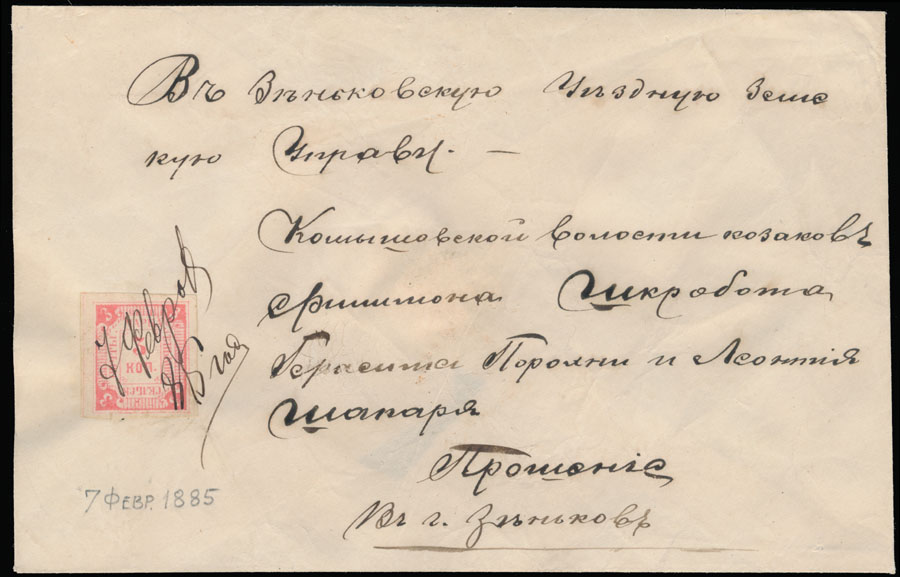 Въ Зѣньковскую Уѣздную Земс
кую Управу. —
Комышовской волости козаковъ
Филимона Шкробота
Герасима Порохни и Леонтія
Шапаря
Прошеніе
Въ г. Зѣньковъ
7 Феврал
85 года
КОП.
7 ФЕВР. 1885